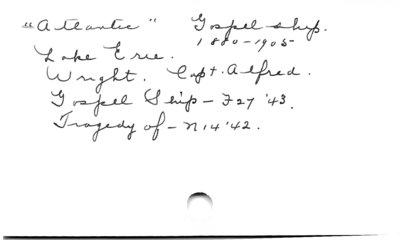 "Atlantic" Gospel ship.
1880-1905
Lake Erie.
Wright. Capt. Alfred.
Gospel Ship - F27 '43.
Tragedy of - N14 '42.